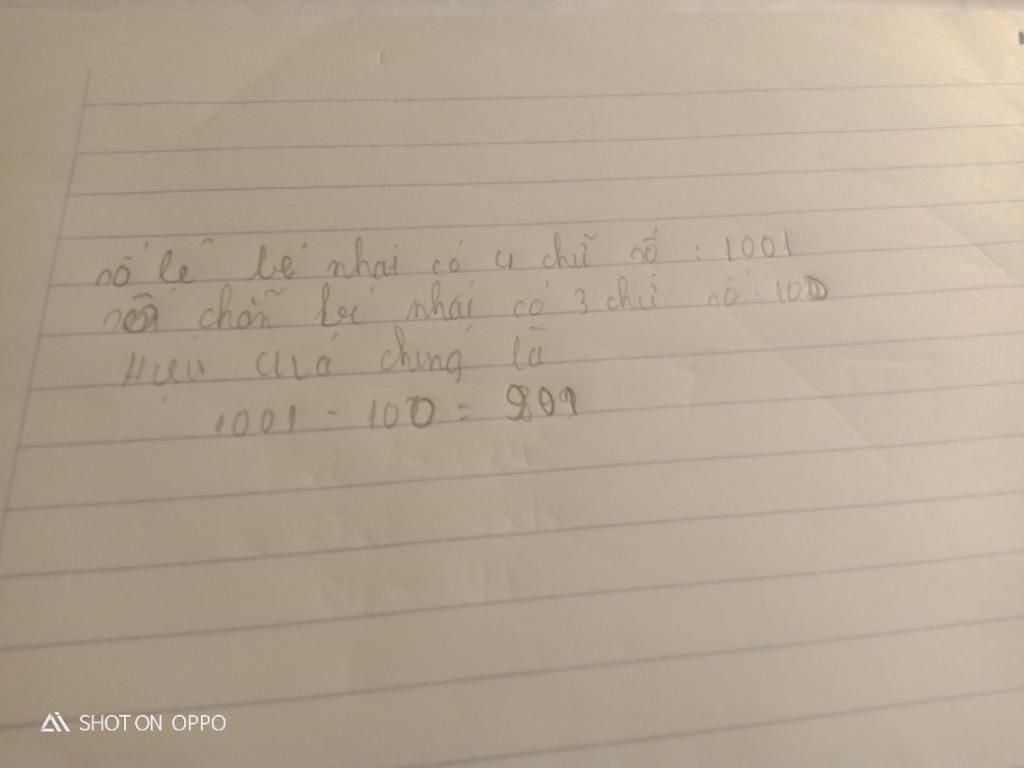 số lẻ bé nhất có 4 chữ số : 1001
số chẵn bé nhất có 3 chữ số : 100
Hiệu của chúng là
1001 - 100 = 901
SHOT ON OPPO